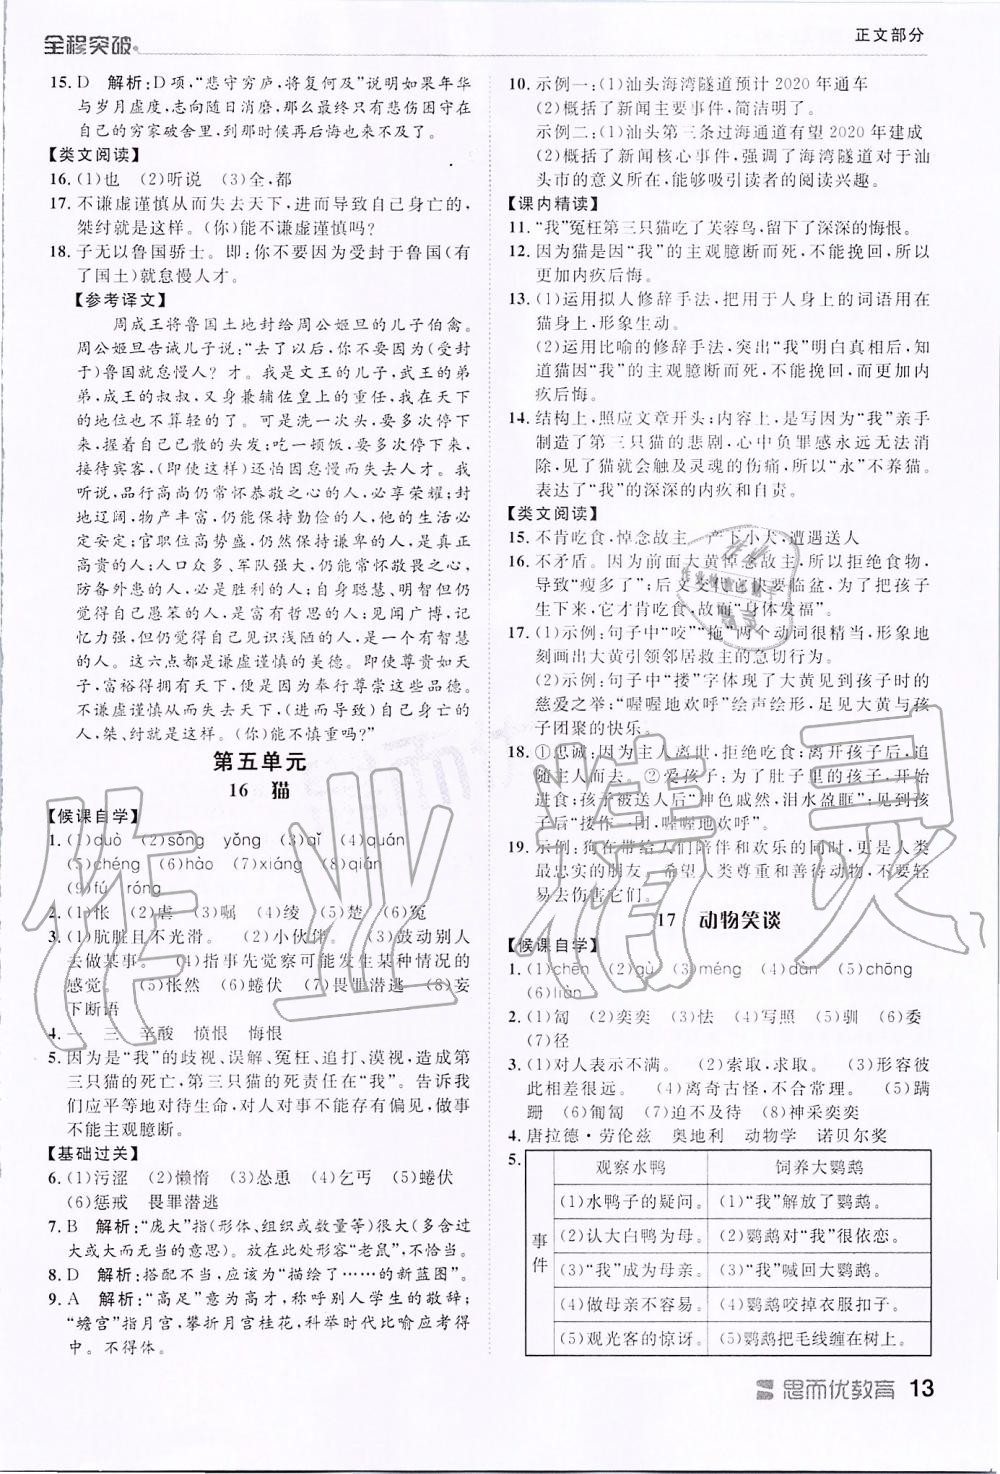 全程突破
正文部分
15. D　解析:D项,“悲守穷庐,将复何及”说明如果年华
与岁月虚度,志向随日消磨,那么最终只有悲伤困守在
自己的穷家破舍里,到那时候再后悔也来不及了。
【类文阅读】
16. (1)也　(2)听说　(3)全,都
17. 不谦虚谨慎从而失去天下,进而导致自己身亡的,
桀纣就是这样。(你)能不谦虚谨慎吗?
18. 子无以鲁国骄士。即:你不要因为受封于鲁国(有
了国土)就怠慢人才。
【参考译文】
周成王将鲁国土地封给周公姬旦的儿子伯禽。
周公姬旦告诫儿子说:“去了以后,你不要因为(受封
于)鲁国就怠慢人?才。我是文王的儿子,武王的弟
弟,成王的叔叔,又身兼辅佐皇上的重任,我在天下
的地位也不算轻的了。可是洗一次头,要多次停下
来,握着自己已散的头发;吃一顿饭,要多次停下来,
接待宾客,(即使这样)还怕因怠慢而失去人才。我
听说,品行高尚仍常怀恭敬之心的人,必享荣耀;封
地辽阔,物产丰富,仍能保持勤俭的人,他的生活必
定安定;官职位高势盛,仍然保持谦卑的人,是真正
高贵的人;人口众多、军队强大,仍能常怀敬畏之心,
防备外患的人,必是胜利的人;自身聪慧、明智但仍
觉得自己愚笨的人,是富有哲思的人;见闻广博,记
忆力强,但仍觉得自己见识浅陋的人,是一个有智慧
的人。这六点都是谦虚谨慎的美德。即使尊贵如天
子,富裕得拥有天下,也是因为奉行尊崇这些品德。
不谦虚谨慎从而失去天下,(进而导致)自己身亡的
人,桀、纣就是这样。(你)能不慎重吗?”
第五单元
16　猫
【候课自学】
1. (1)duò　(2)sǒng　yǒng　(3)qǐ　(4)quán
(5)chéng　(6)hào　(7)xiáng　(8)qián
(9)fú　róng
2. (1)怅　(2)虐　(3)嘱　(4)绫　(5)楚　(6)冤
3. (1)肮脏且不光滑。　(2)小伙伴。　(3)鼓动别人
去做某事。　(4)指事先觉察可能发生某种情况的
感觉。　(5)怅然　(6)蜷伏　(7)畏罪潜逃　(8)妄
下断语
4. 一　三　辛酸　愤恨　悔恨
5. 因为是“我”的歧视、误解、冤枉、追打、漠视,造成第
三只猫的死亡,第三只猫的死责任在“我”。告诉我
们应平等地对待生命,对人对事不能存有偏见,做事
不能主观臆断。
【基础过关】
6. (1)污涩　(2)懒惰　(3)芙蓉　(4)乞丐　(5)蜷伏
(6)惩戒　畏罪潜逃
7. B　解析:“庞大”指(形体、组织或数量等)很大(多含过
大或大而无当的意思)。放在此处形容“老鼠”,不恰当。
8. D　解析:搭配不当,应该为“描绘了……的新蓝图”。
9. A　解析:“高足”意为高才,称呼别人学生的敬辞;
“蟾宫”指月宫,攀折月宫桂花,科举时代比喻应考得中
。不得体。
10. 示例一:(1)汕头海湾隧道预计2020年通车
(2)概括了新闻主要事件,简洁明了。
示例二:(1)汕头第三条过海通道有望2020年建成
(2)概括新闻核心事件,强调了海湾隧道对于汕
头市的意义所在,能够吸引读者的阅读兴趣。
【课内精读】
11. “我”冤枉第三只猫吃了芙蓉鸟,留下了深深的悔恨。
12. 因为猫是因“我”的主观臆断而死,不能挽回,所以
更加内疚后悔。
13. (1)运用拟人修辞手法,把用于人身上的词语用在
猫身上,形象生动。
(2)运用比喻的修辞手法,突出“我”明白真相后,面
知道猫因“我”的主观臆断而死,不能挽回,更加内
疚后悔。
14. 结构上,照应文章开头;内容上,是写因为“我”亲手
制造了第三只猫的悲剧,心中负罪感永远无法消
除,见了猫就会触及灵魂的伤痛,所以“永”不养猫。
表达了“我”的深深的内疚和自责。
【类文阅读】
15. 不肯吃食,悼念故主　产下小犬,遭遇送人
16. 不矛盾。因为前面大黄悼念故主,所以拒绝食物,
导致“瘦多了”;后文交代它快要临盆,为了把孩子
生下来,它才肯吃食,故而“身体发福”。
17. (1)示例:句子中“咬”“拖”两个动词很精当,形象地
刻画出大黄引领邻居救主的急切行为。
(2)示例:句子中“搂”字体现了大黄见到孩子时的
慈爱之举;“喔喔地欢呼”绘声绘形,足见大黄与孩
子团聚的快乐。
18. ①忠诚:因为主人离世,拒绝吃食;离开孩子后,追
随主人而去。②爱孩子:为了肚子里的孩子,开始
进食;孩子被送人后“神色戚然,泪水盈眶”;见到孩
子后“搂作一团,喔喔地欢呼”。
19. 示例:狗在带给人们陪伴和欢乐的同时,更是人类
最忠实的朋友。希望人类尊重和善待动物,不要轻
易去伤害它们。
17　动物笑谈
【候课自学】
1. (1)chēn　(2)qù　(3)méng　(4)dàn　(5)chōng
(6)liàn
2. (1)匐　(2)奕奕　(3)怯　(4)写照　(5)驯　(6)委
(7)径
3. (1)对人表示不满。　(2)索取,求取。　(3)形容彼
此相差很远。　(4)离奇古怪,不合常理。　(5)蹒
跚　(6)匍匐　(7)迫不及待　(8)神采奕奕
4. 唐拉德·劳伦兹　奥地利　动物学　诺贝尔奖
5.
观察水鸭　饲养大鹦鹉
事件
(1)水鸭子的疑问。　(1)“我”解放了鹦鹉。
(2)认大白鸭为母。　(2)鹦鹉对“我”很依恋。
(3)“我”成为母亲。　(3)“我”喊回大鹦鹉。
(4)做母亲不容易。　(4)鹦鹉咬掉衣服扣子。
(5)观光客的惊讶。　(5)鹦鹉把毛线缠在树上。
思而优教育　13
作业精灵